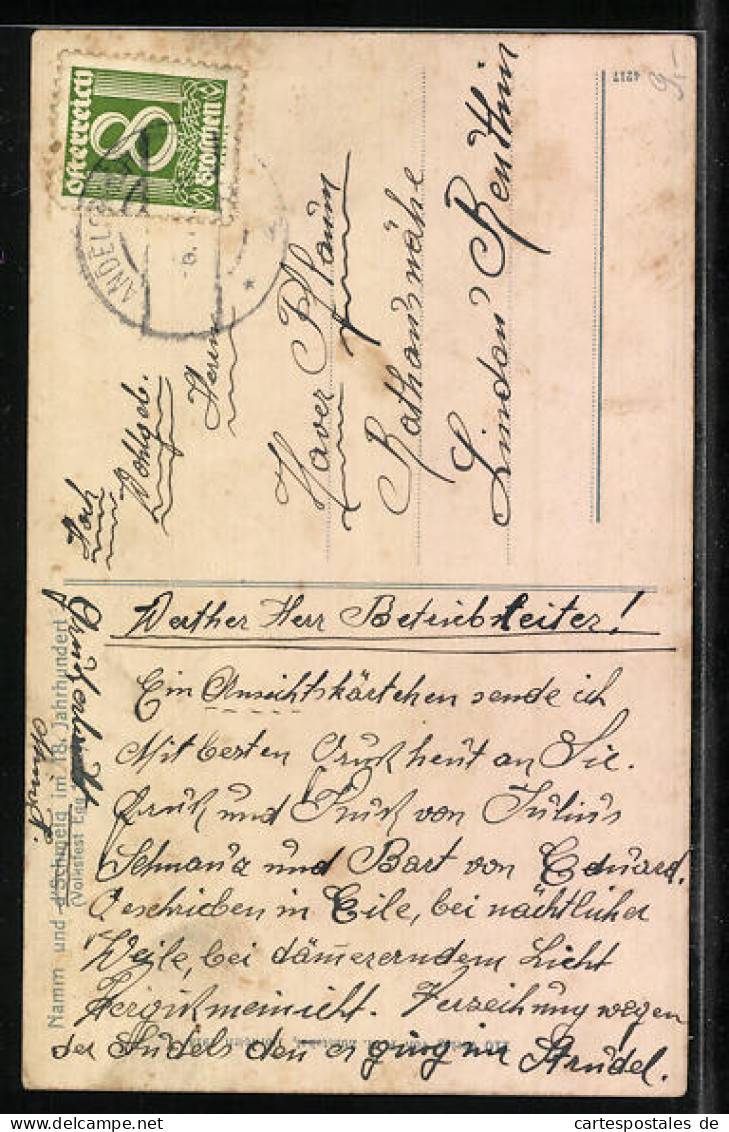 4217
9,-
Österreich
8
Groschen
ANDELSBUCH
Hoch
Wohlgeb.
Herrn
Xaver Pflaum
Rathausnähe
Lindau Reuthin
Werther Herr Betriebsleiter!
Ein Ansichtskärtchen sende ich
Mit besten Gruß heut an Sie.
Gruß und Kuß von Julius
Schnauz und Bart von Eduard.
Geschrieben in Eile, bei nächtlicher
Weile, bei dämerendem Licht
Vergißmeinicht. Verzeihung wegen
der Sudels den er ging im Strudel.
Namm und d'Schmelg im 18. Jahrhundert
(Volksfest Egg
cartespostales.de